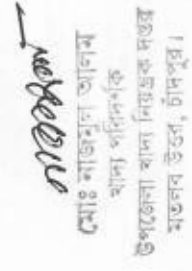 মোঃ মাজহারুল আলম
খাদ্য পরিদর্শক
উপজেলা খাদ্য নিয়ন্ত্রক দপ্তর
মতলব উত্তর, চাঁদপুর।